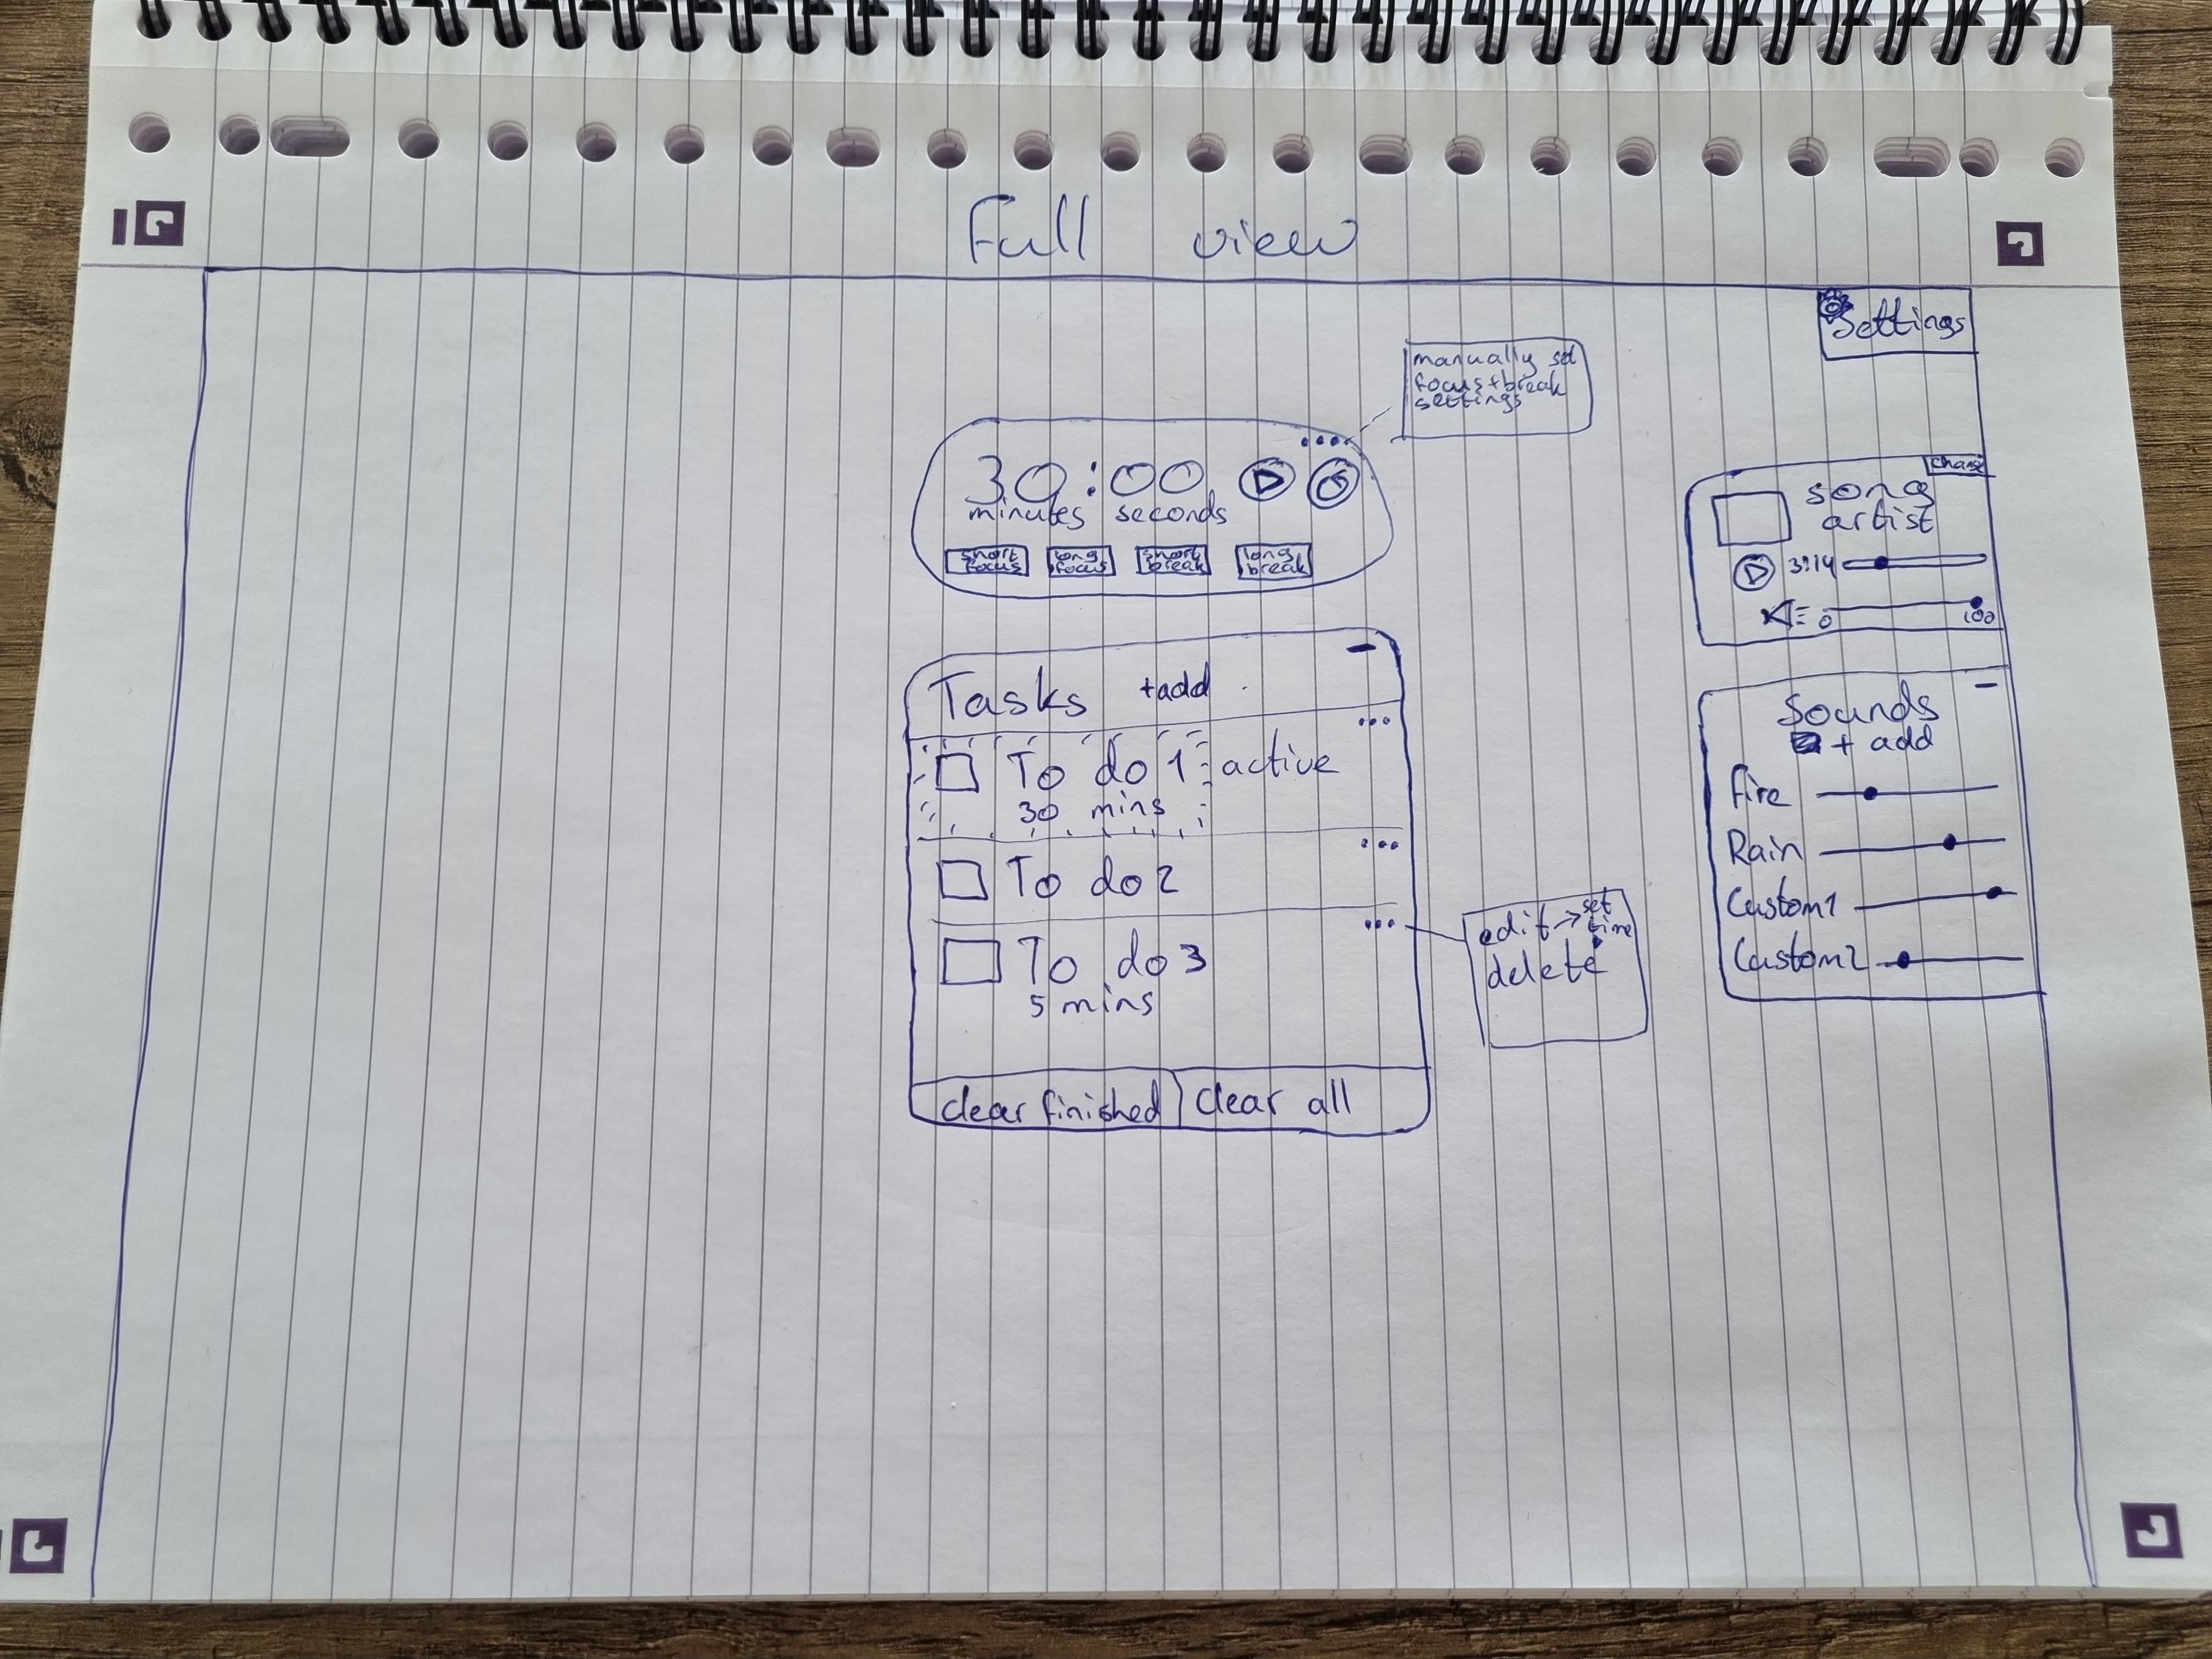 Full view
Settings
manually set
focus+break
settings
30:00
minutes seconds
short
focus
long
focus
short
break
long
break
change
song
artist
3:14
0 100
Tasks +add
To do 1 active
30 mins
To do 2
To do 3
5 mins
clear finished clear all
edit → set
time
delete
Sounds
+ add
Fire
Rain
Custom1
Custom2